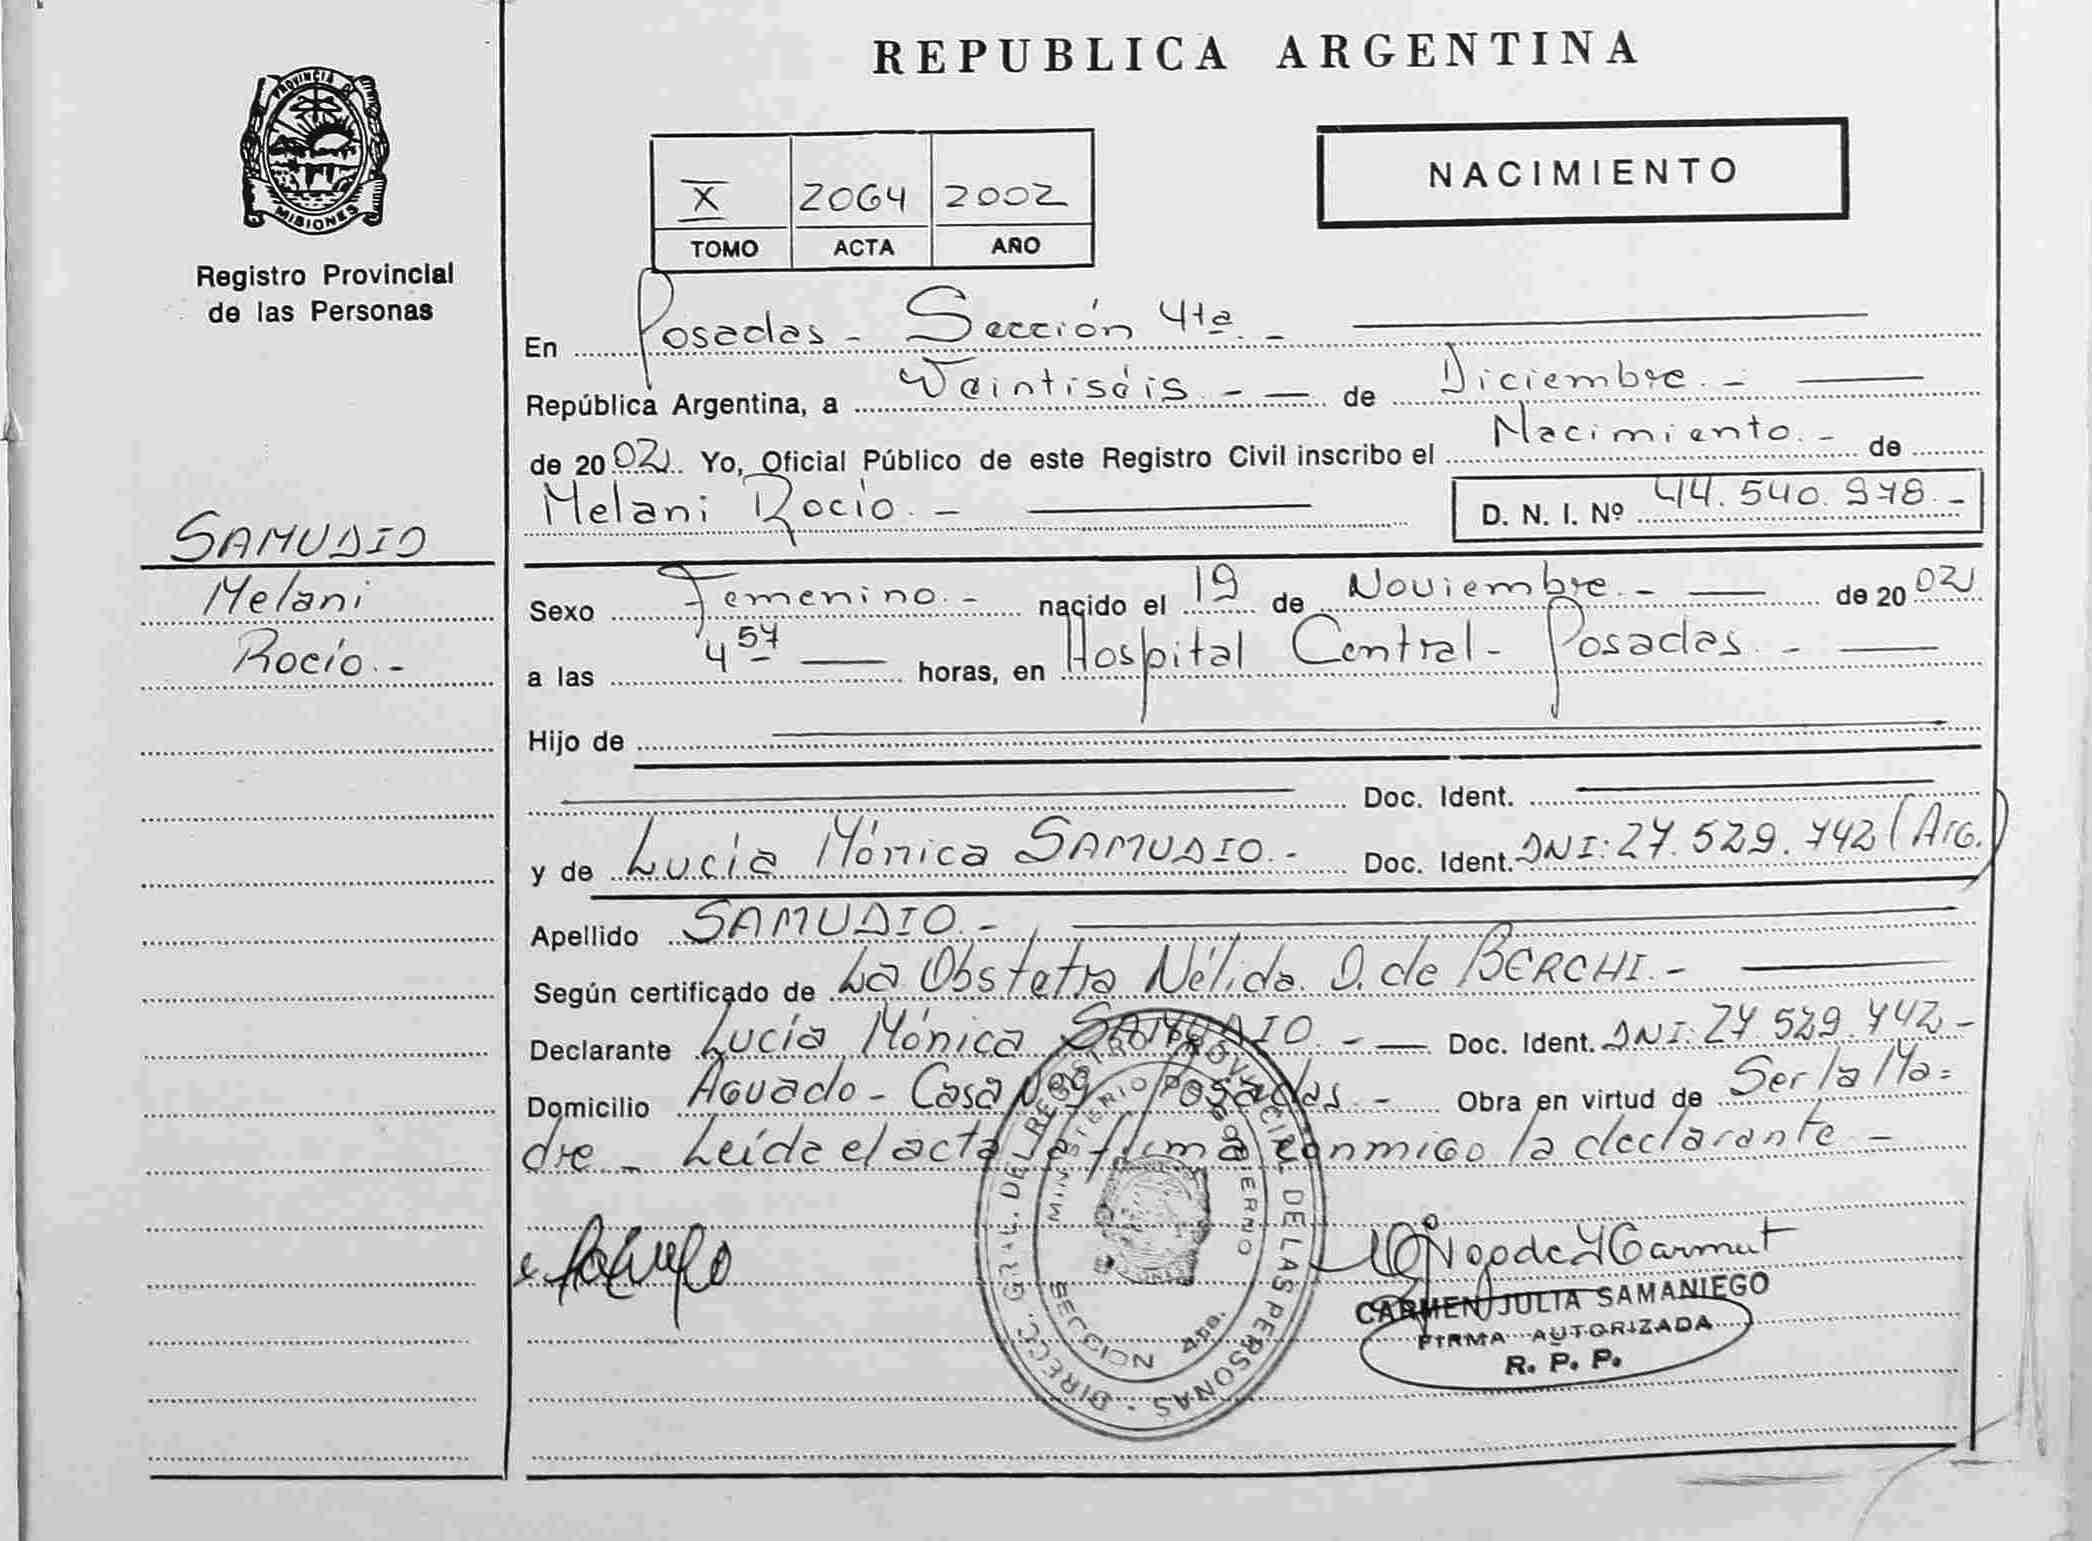 REPUBLICA ARGENTINA
PROVINCIA DE
MISIONES
Registro Provincial
de las Personas
NACIMIENTO
X 2064 2002
TOMO ACTA AÑO
En Posadas - Sección 4ta. -
República Argentina, a Veintiséis. - — de Diciembre. -
de 2002. Yo, Oficial Público de este Registro Civil inscribo el Nacimiento. - de
Melani Rocío. - D. N. I. Nº 44.540.978. -
SAMUDIO
Melani
Rocío. -
Sexo Femenino. - nacido el 19 de Noviembre. - de 2002
a las 4 57 horas, en Hospital Central - Posadas. -
Hijo de
Doc. Ident.
y de Lucía Mónica SAMUDIO. - Doc. Ident. DNI: 27.529.742 (Arg.)
Apellido SAMUDIO. -
Según certificado de La Obstetra Nélida D. de BERCHI. -
Declarante Lucía Mónica SAMUDIO. - — Doc. Ident. DNI: 27.529.742 -
Domicilio Aguado - Casa Posadas. - Obra en virtud de Ser la Ma=
dre - Leída el acta la firma conmigo la declarante -
DIRECC. GRAL. DE REGISTRO PROVINCIAL DE LAS PERSONAS
MINISTERIO GOBIERNO
SECCION 4ta.
CARMEN JULIA SAMANIEGO
FIRMA AUTORIZADA
R. P. P.